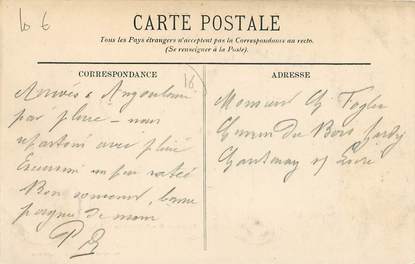 10 €
CARTE POSTALE
Tous les Pays étrangers n'acceptent pas la Correspondance au recto.
(Se renseigner à la Poste).
CORRESPONDANCE
ADRESSE
16
Arrivés à Angoulême
par pluie - nous
repartons avec pluie
Excursion un peu ratée
Bon souvenir, bonne
poignée de main
Monsieur Ch
du Bois
Chantenay s/ Loire